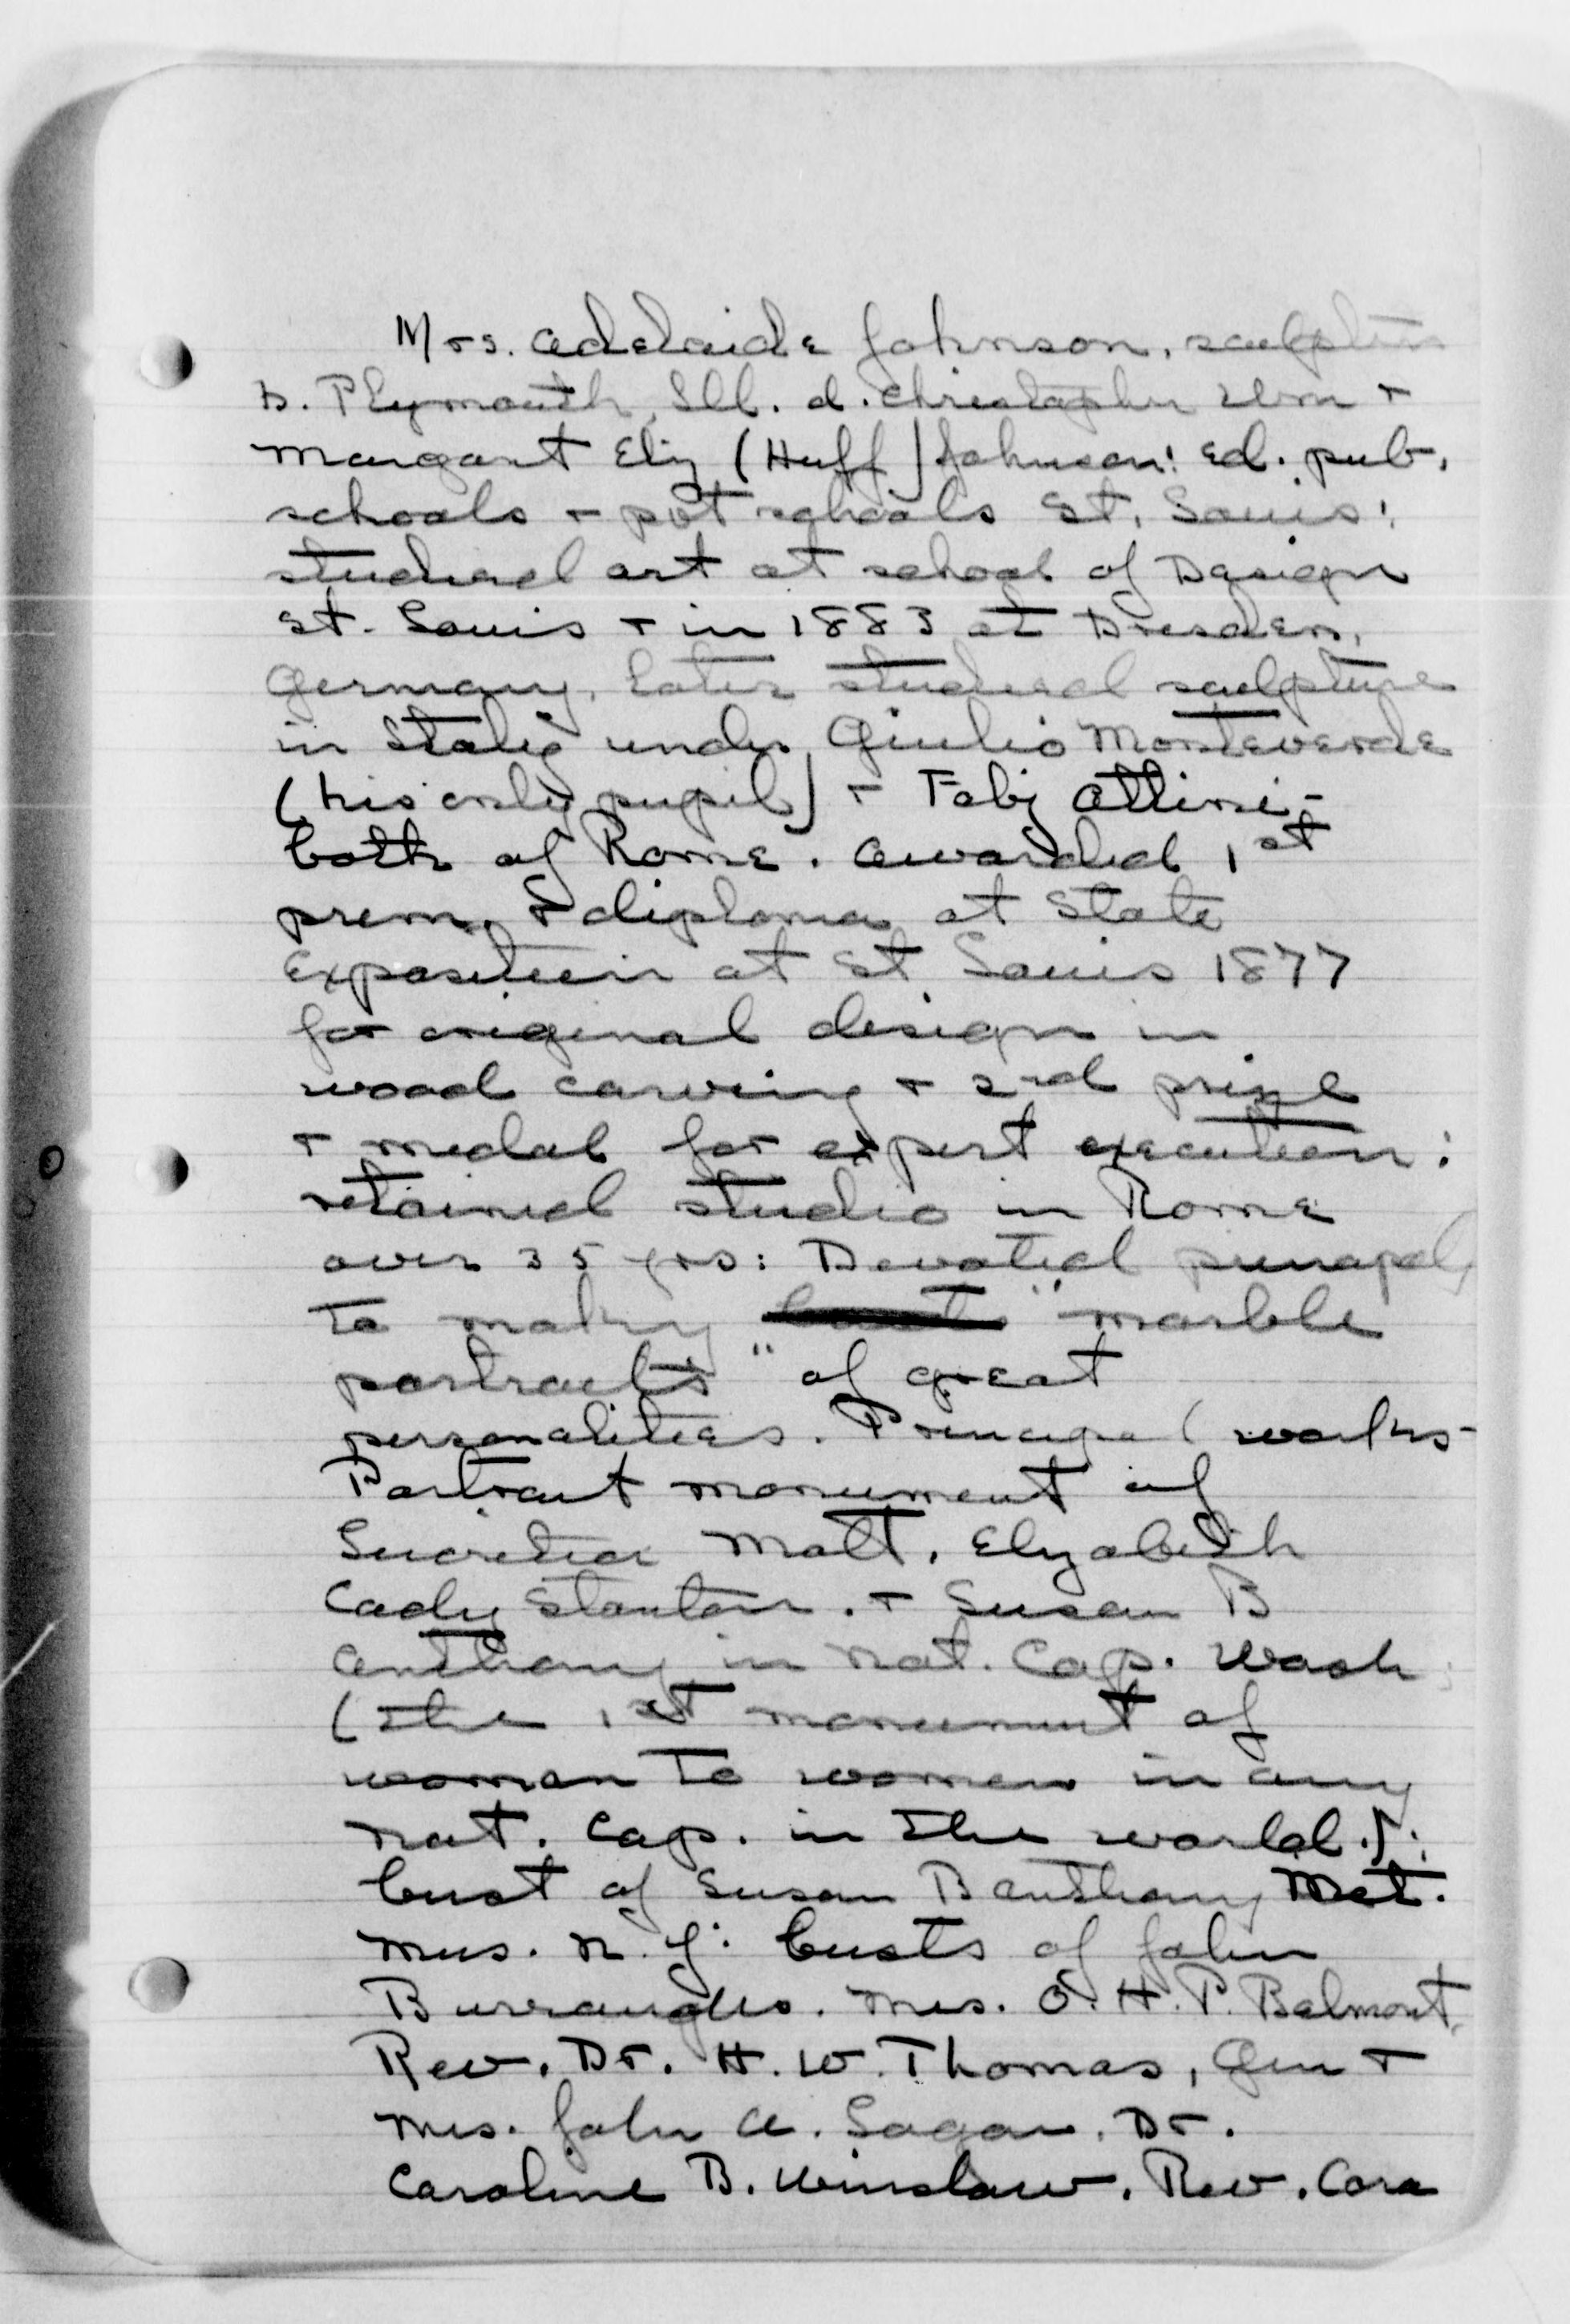 Mrs. Adelaide Johnson, sculptress
b. Plymouth, Ill. d. Christopher Wm +
Margart Eliz (Huff) Johnson: Ed. pub.
schools + pvt schools St. Louis:
studied art at school of Design
St. Louis + in 1883 at Dresden,
Germany, later studied sculpture
in Italy under Giulio Monteverde
(his only pupil) + Fabj Altini -
both of Rome. Awarded 1st
prem. + diploma at State
Exposition at St Louis 1877
for original design in
wood carving + 2nd prize
+ medal for expert execution:
retained studio in Rome
over 35 yrs: Devoted principally
to making "marble
portraits" of great
personalities. Principal works-
Portrait monument of
Lucretia Mott, Elizabeth
Cady Stanton. + Susan B
Anthony in Nat. Cap. Wash
(the 1st monument of
woman to women in any
nat. Cap. in the world.);
bust of Susan B Anthony Met.
Mus. N.Y: busts of John
Burroughs. Mrs. O.H.P. Belmont,
Rev. Dr. H.W. Thomas, Gen +
Mrs. John A. Logan. Dr.
Caroline B. Winslow. Rev. Cora